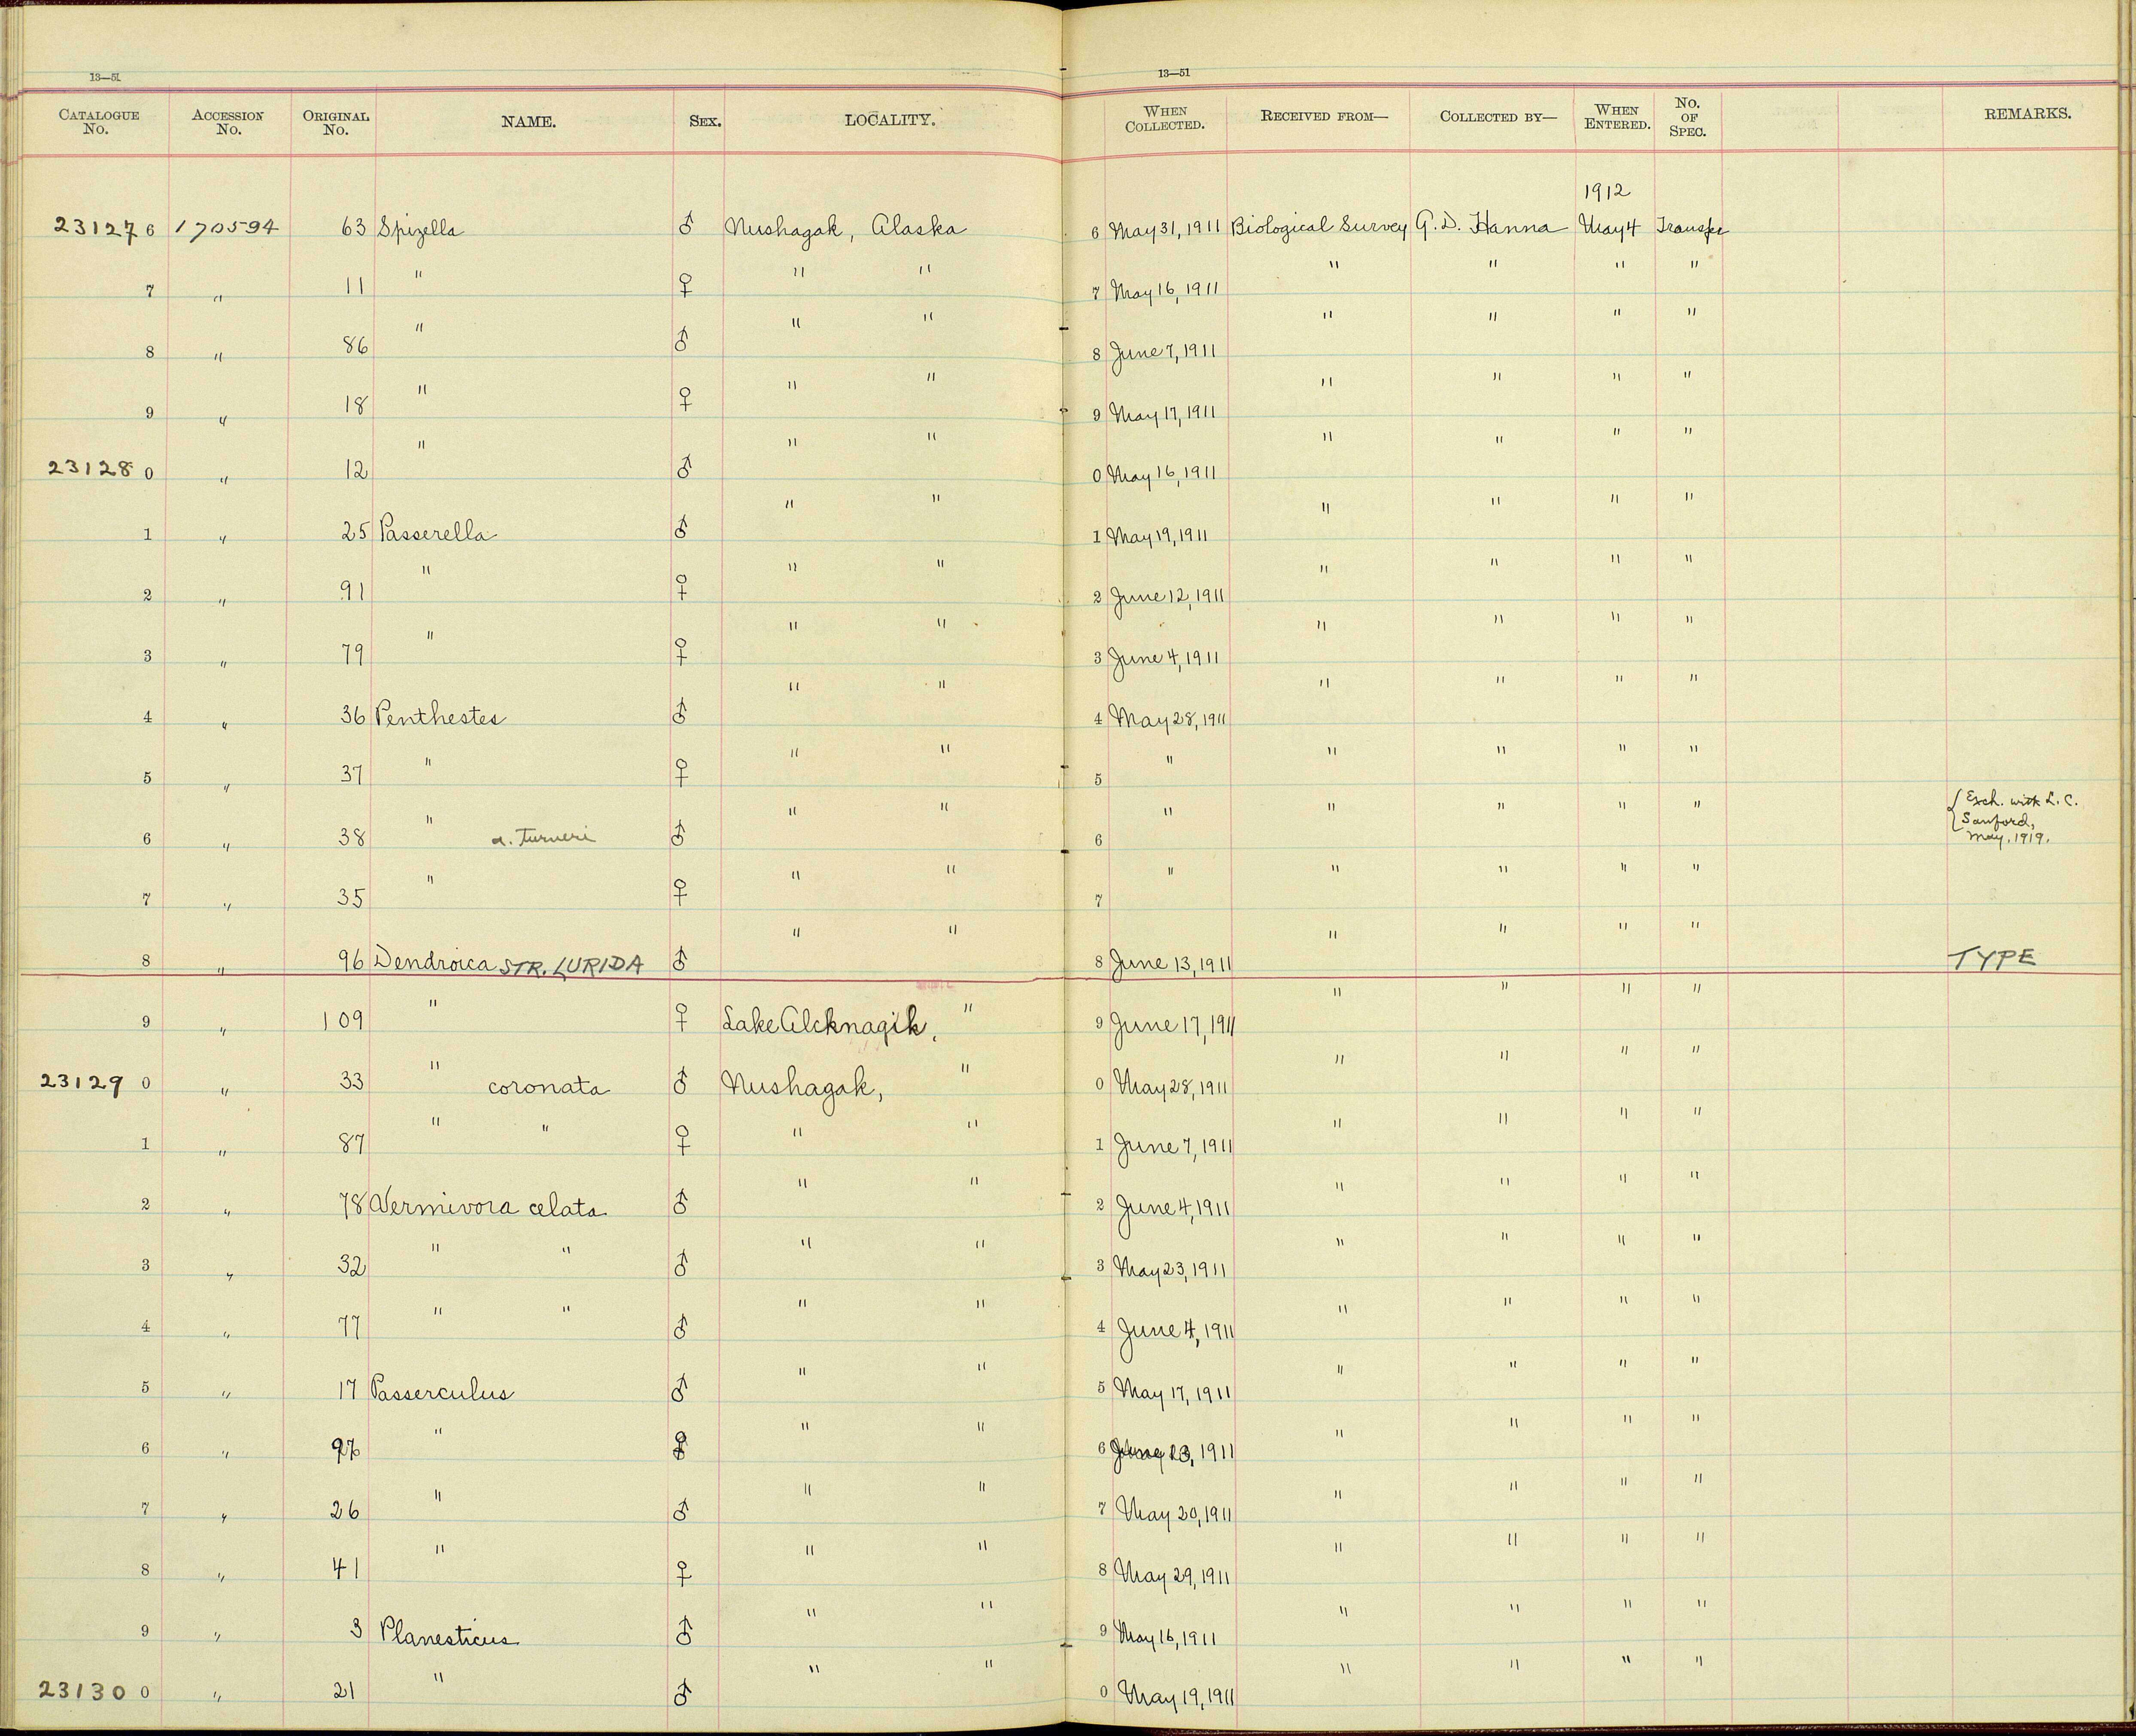 13—51 13—51
CATALOGUE No. ACCESSION No. ORIGINAL No. NAME. SEX. LOCALITY. WHEN COLLECTED. RECEIVED FROM— COLLECTED BY— WHEN ENTERED. No. OF SPEC. REMARKS.
1912
23127 6 170594 63 Spizella ♂ Nushagak, Alaska 6 May 31, 1911 Biological Survey G. D. Hanna May 4 Transfer
7 " 11 " ♀ " " 7 May 16, 1911 " " " "
8 " 86 " ♂ " " 8 June 7, 1911 " " " "
9 " 18 " ♀ " " 9 May 17, 1911 " " " "
23128 0 " 12 " ♂ " " 0 May 16, 1911 " " " "
1 " 25 Passerella ♂ " " 1 May 19, 1911 " " " "
2 " 91 " ♀ " " 2 June 12, 1911 " " " "
3 " 79 " ♀ " " 3 June 4, 1911 " " " "
4 " 36 Penthestes ♂ " " 4 May 28, 1911 " " " "
5 " 37 " ♀ " " 5 " " " " "
6 " 38 " a. turneri ♂ " " 6 " " " " " Exch. with L. C.
Sanford,
May, 1919.
7 " 35 " ♀ " " 7 " " " " "
8 " 96 Dendroica STR. LURIDA ♂ " " 8 June 13, 1911 " " " " TYPE
9 " 109 " ♀ Lake Alcknagik, " 9 June 17, 1911 " " " "
23129 0 " 33 " coronata ♂ Nushagak, " 0 May 28, 1911 " " " "
1 " 87 " " ♀ " " 1 June 7, 1911 " " " "
2 " 78 Vermivora celata ♂ " " 2 June 4, 1911 " " " "
3 " 32 " " ♂ " " 3 May 23, 1911 " " " "
4 " 77 " " ♂ " " 4 June 4, 1911 " " " "
5 " 17 Passerculus ♂ " " 5 May 17, 1911 " " " "
6 " " " " 6 1911 " " " "
7 " 26 " ♂ " " 7 May 20, 1911 " " " "
8 " 41 " ♀ " " 8 May 29, 1911 " " " "
9 " 3 Planesticus ♂ " " 9 May 16, 1911 " " " "
23130 0 " 21 " ♂ " " 0 May 19, 1911 " " " "